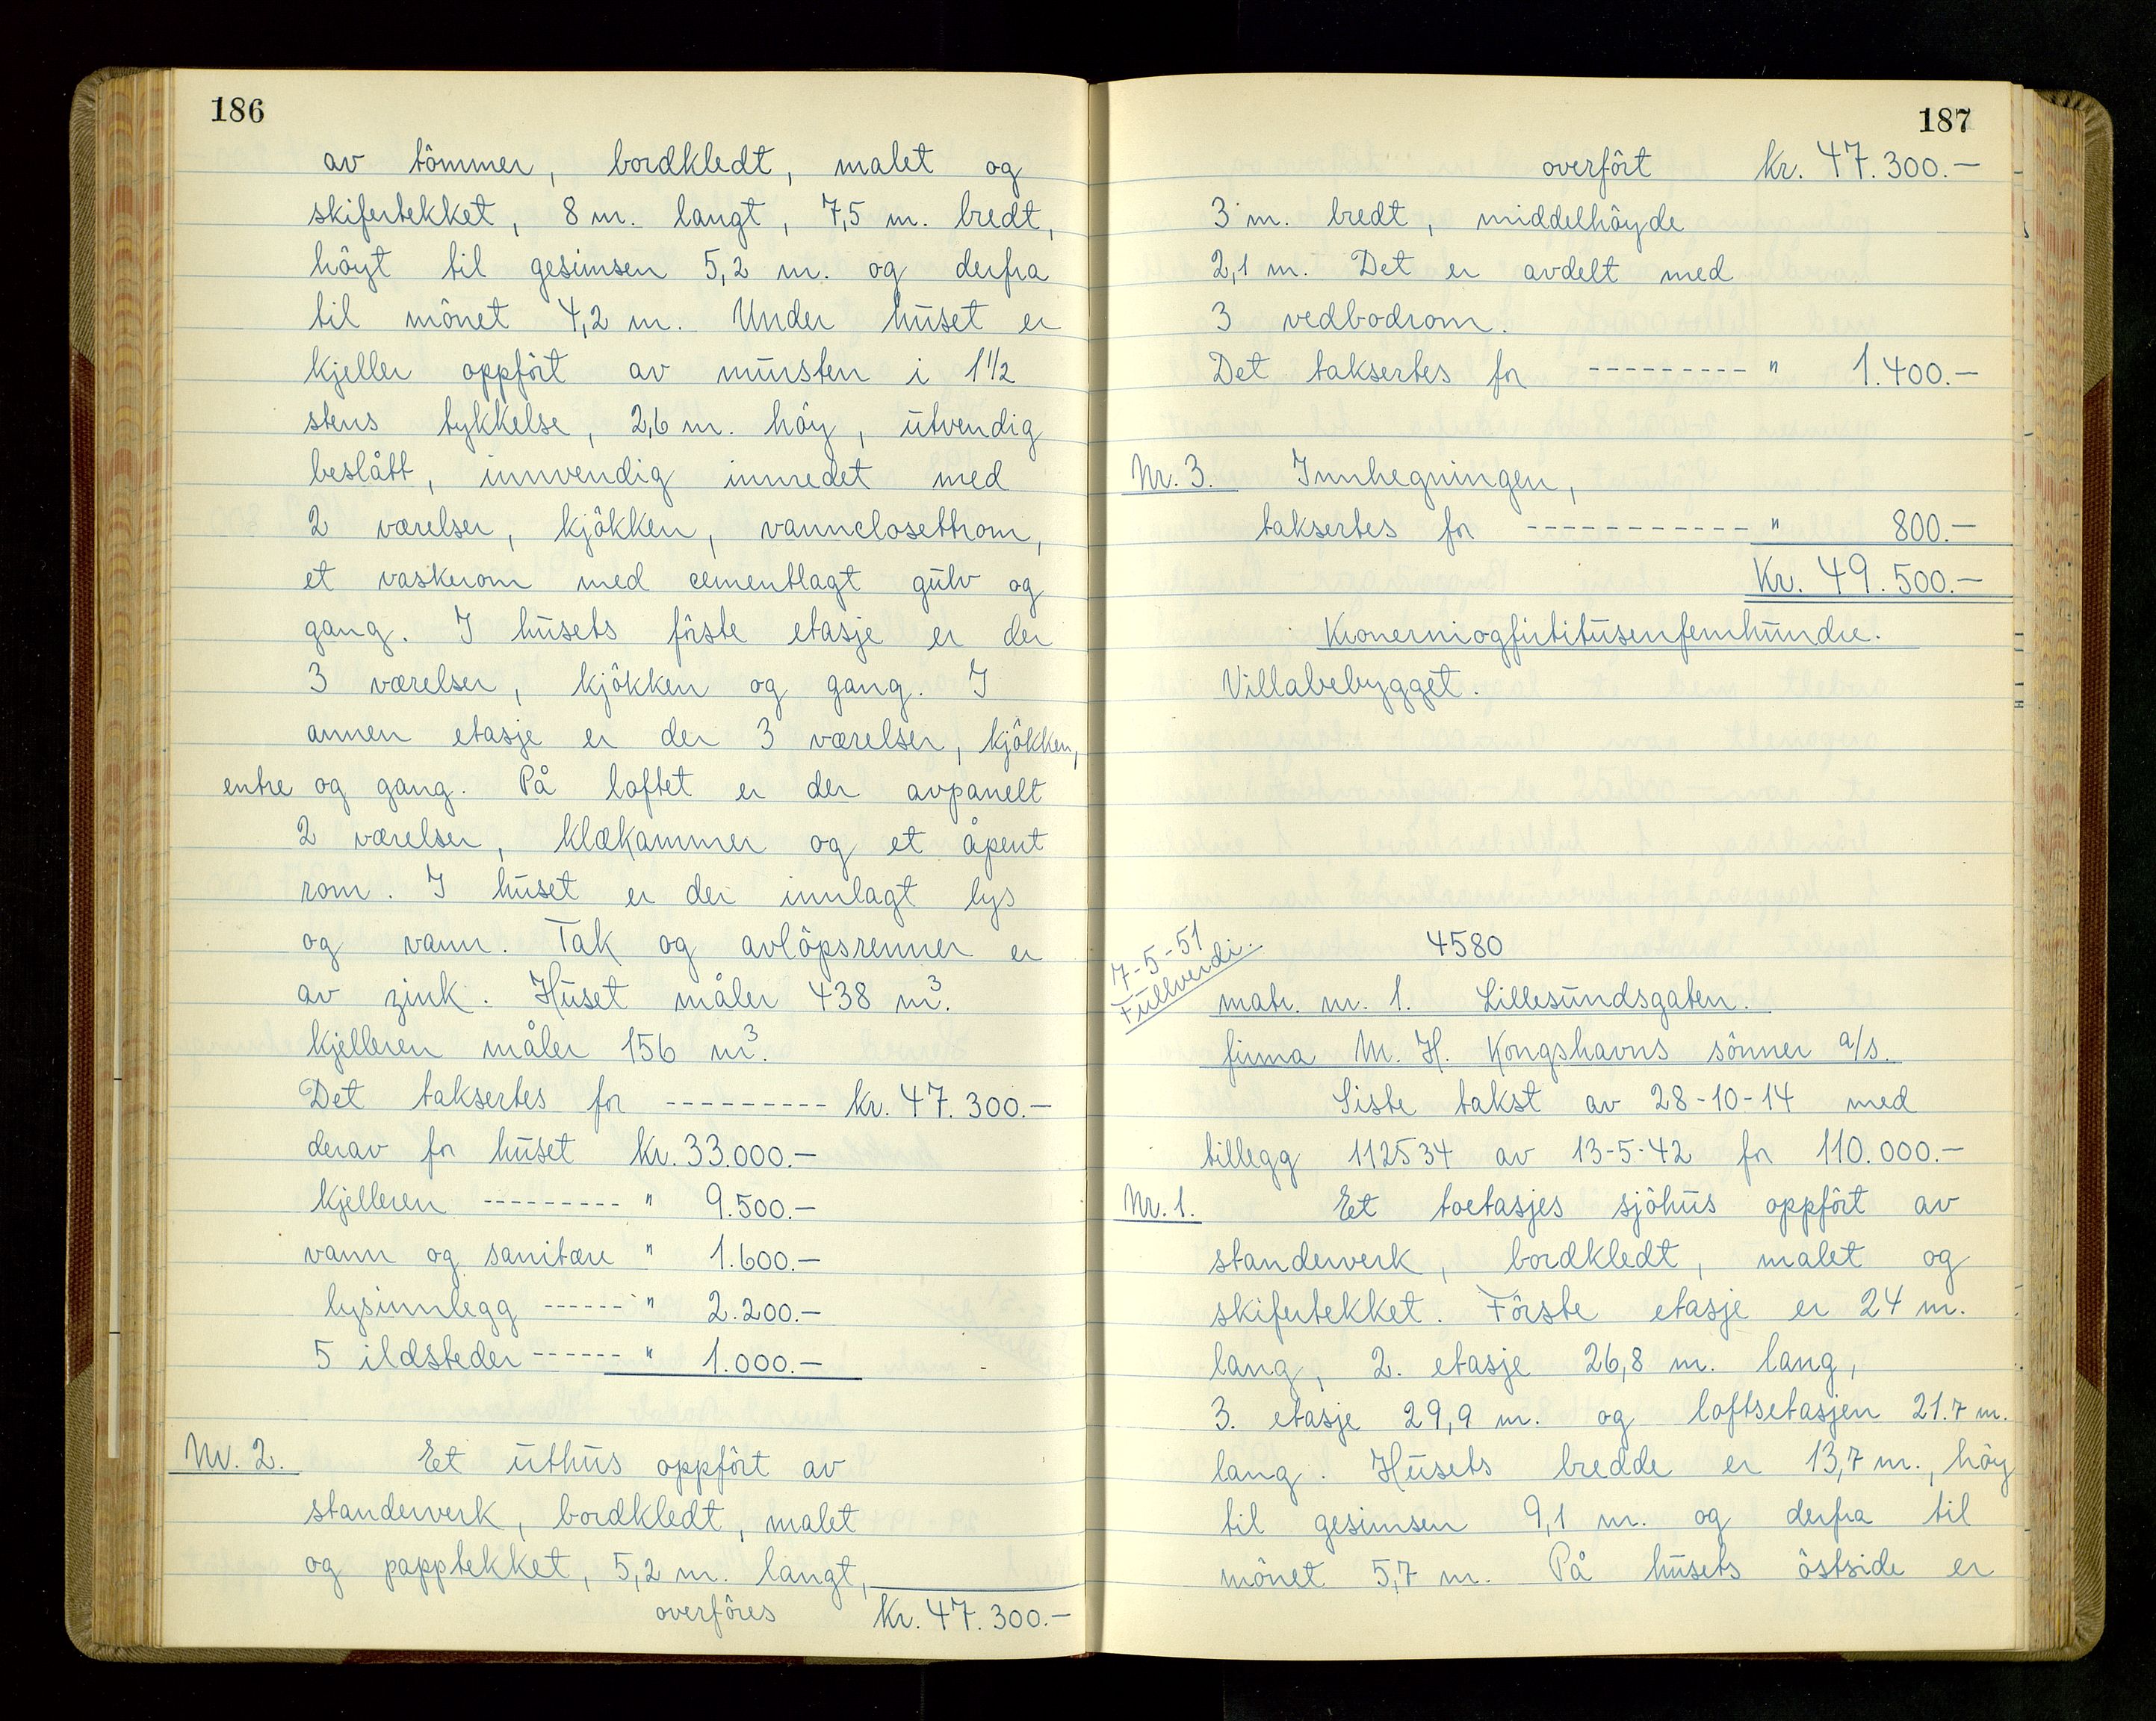 186
av tömmer, bordkledt, malet og
skifertekket, 8 m. langt, 7,5 m. bredt,
höyt til gesimsen 5,2 m. og derfra
til mönet 4,2 m. Under huset er
kjeller oppfört av mursten i 1 1/2
stens tykkelse, 2,6 m. höy, utvendig
beslått, innvendig innredet med
2 værelser, kjökken, vannclosettrom,
et vaskerom med cementlagt gulv og
gang. I husets förste etasje er der
3 værelser, kjökken og gang. I
annen etasje er der 3 værelser, kjökken,
entre og gang. På loftet er der avpanelt
2 værelser, klækammer og et åpent
rom. I huset er der innlagt lys
og vann. Tak og avlöpsrenner er
av zink. Huset måler 438 m³.
kjelleren måler 156 m³.
Det taksertes for --------- kr. 47.300.—
derav for huset kr. 33.000.—
kjelleren --------- " 9.500.—
vann og sanitære " 1.600.—
lysinnlegg ------ " 2.200.—
5 ildsteder ------ " 1.000.—
Nr. 2. Et uthus oppfört av
standerverk, bordkledt, malet
og papptekket, 5,2 m. langt,
overföres kr. 47.300.—
187
overfört kr. 47.300.—
3 m. bredt, middelhöyde
2,1 m. Det er avdelt med
3 vedbodrom.
Det taksertes for --------- " 1.400.—
Nr. 3. Innhegningen,
taksertes for ------------ " 800.—
Kr. 49.500.—
Kronerniogfirtitusenfemhundre.
Villabebygget.
7-5-51
Fullverdi.
4580
matr. nr. 1. Lillesundsgaten.
firma M. H. Kongshavns sönner a/s.
Siste takst av 28-10-14 med
tillegg 112534 av 13-5-42 for 110.000.—
Nr. 1. Et toetasjes sjöhus oppfört av
standerverk, bordkledt, malet og
skifertekket. Förste etasje er 24 m.
lang, 2. etasje 26,8 m. lang,
3. etasje 29,9 m. og loftsetasjen 21.7 m.
lang. Husets bredde er 13,7 m., höy
til gesimsen 9,1 m. og derfra til
mönet 5,7 m. På husets östside er